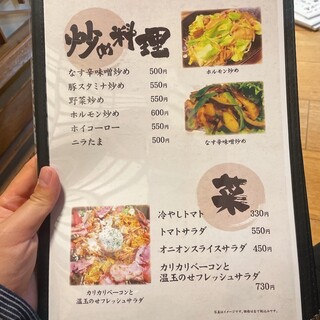 炒め料理
なす辛味噌炒め 500円
豚スタミナ炒め 550円
野菜炒め 550円
ホルモン炒め 600円
ホイコーロー 550円
ニラたま 500円
ホルモン炒め
なす辛味噌炒め
菜
冷やしトマト 330円
トマトサラダ 550円
オニオンスライスサラダ 450円
カリカリベーコンと
温玉のせフレッシュサラダ
730円
カリカリベーコンと
温玉のせフレッシュサラダ